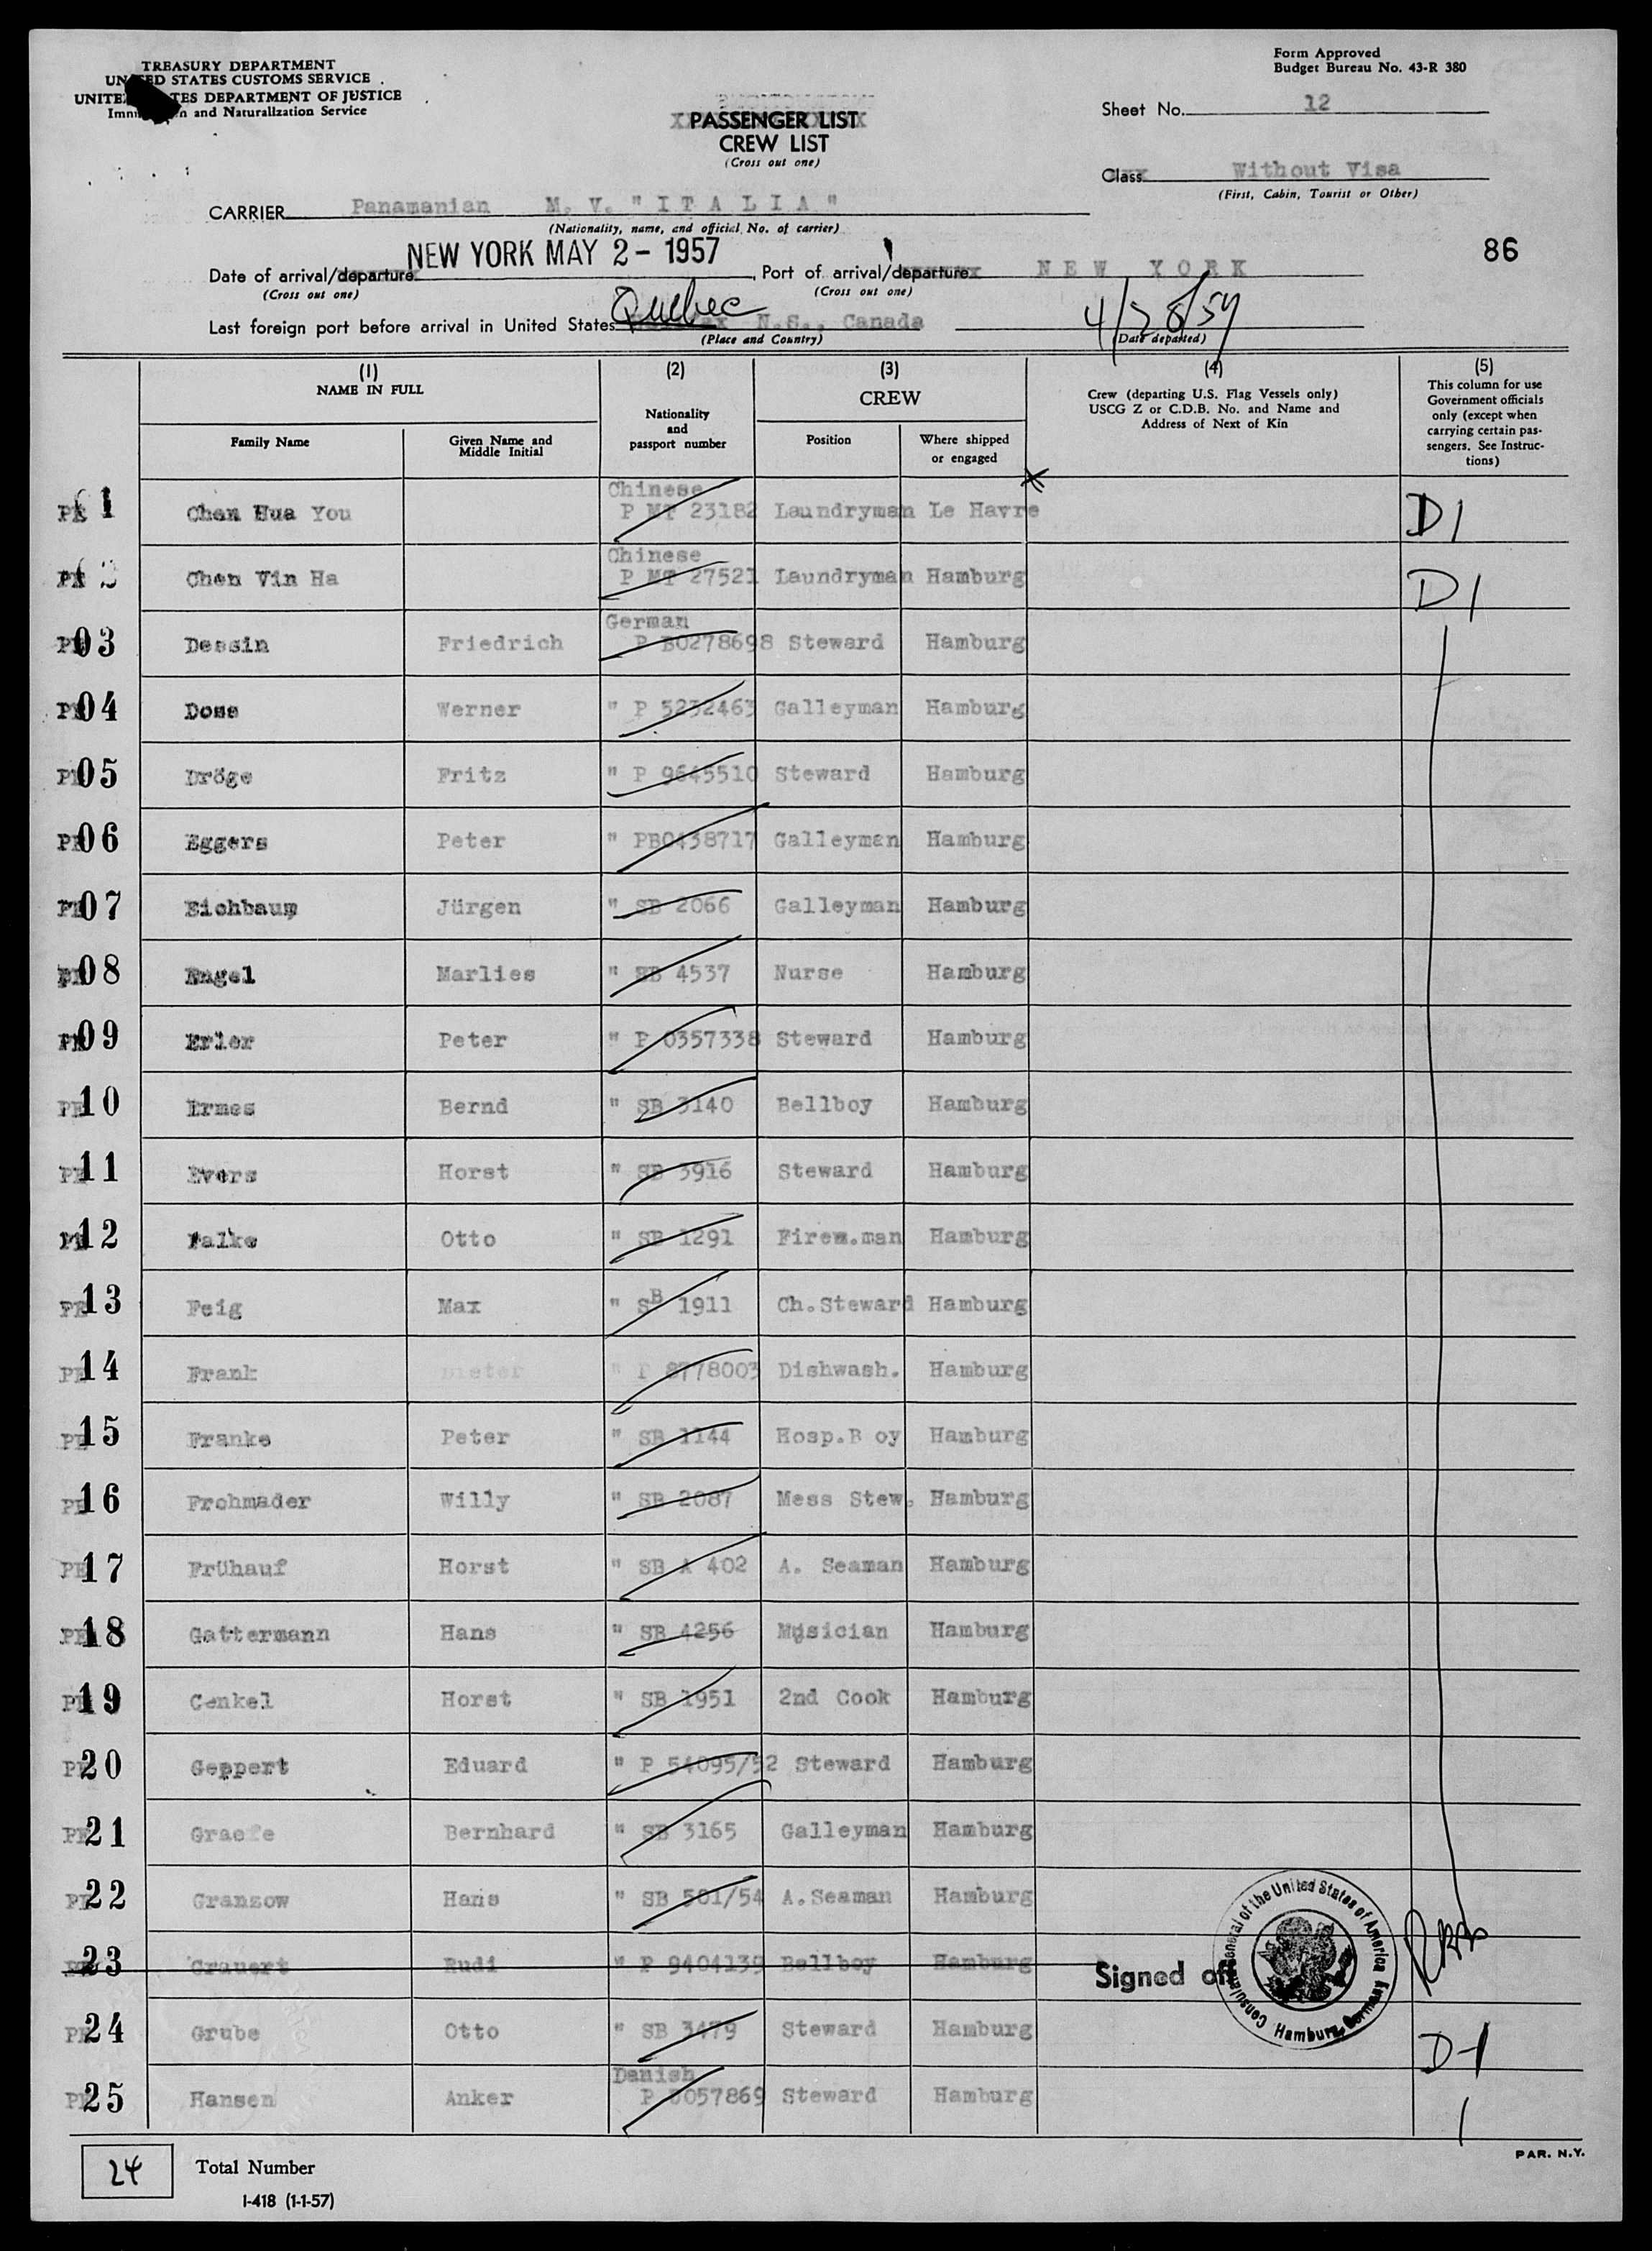 TREASURY DEPARTMENT
UNITED STATES CUSTOMS SERVICE
UNITED STATES DEPARTMENT OF JUSTICE
Immigration and Naturalization Service
Form Approved
Budget Bureau No. 43-R 380
PASSENGER LIST
CREW LIST
(Cross out one)
Sheet No. 12
Class Without Visa
(First, Cabin, Tourist or Other)
CARRIER Panamanian M. V. "I T A L I A"
(Nationality, name, and official No. of carrier)
86
Date of arrival/departure NEW YORK MAY 2 - 1957, Port of arrival/departure N E W Y O R K
(Cross out one) (Cross out one)
Last foreign port before arrival in United States Quebec N.S., Canada 4/28/57
(Place and Country) (Date departed)
(1) (2) (3) (4) (5)
NAME IN FULL
Family Name
Given Name and Middle Initial
Nationality and passport number
CREW
Position
Where shipped or engaged
Crew (departing U.S. Flag Vessels only)
USCG Z or C.D.B. No. and Name and
Address of Next of Kin
This column for use
Government officials
only (except when
carrying certain pas-
sengers. See Instruc-
tions)
1 Chen Hua You Chinese P MT 23182 Laundryman Le Havre D1
2 Chen Vin Ha Chinese P MT 27521 Laundryman Hamburg D1
03 Dessin Friedrich German P B0278698 Steward Hamburg
04 Dose Werner " P 5232463 Galleyman Hamburg
05 Dröge Fritz " P 9645510 Steward Hamburg
06 Eggers Peter " PB0438717 Galleyman Hamburg
07 Eichbaum Jürgen " SB 2066 Galleyman Hamburg
08 Engel Marlies " SB 4537 Nurse Hamburg
09 Erler Peter " P 0357338 Steward Hamburg
10 Ermes Bernd " SB 3140 Bellboy Hamburg
11 Evers Horst " SB 3916 Steward Hamburg
12 Falke Otto " SB 1291 Firem.man Hamburg
13 Feig Max " SB 1911 Ch.Steward Hamburg
14 Frank Dieter " P 8778003 Dishwash. Hamburg
15 Franke Peter " SB 1144 Hosp.B oy Hamburg
16 Frohmader Willy " SB 2087 Mess Stew. Hamburg
17 Frühauf Horst " SB A 402 A. Seaman Hamburg
18 Gattermann Hans " SB 4256 Musician Hamburg
19 Genkel Horst " SB 1951 2nd Cook Hamburg
20 Geppert Eduard " P 54095/52 Steward Hamburg
21 Graefe Bernhard " SB 3165 Galleyman Hamburg
22 Granzow Hans " SB 501/54 A.Seaman Hamburg
23 Grauert Rudi " P 9404139 Bellboy Hamburg Signed off
Consulate General of the United States of America Hamburg, Germany
24 Grube Otto " SB 3479 Steward Hamburg D-1
25 Hansen Anker Danish P 057869 Steward Hamburg
24 Total Number
I-418 (1-1-57)
PAR. N.Y.